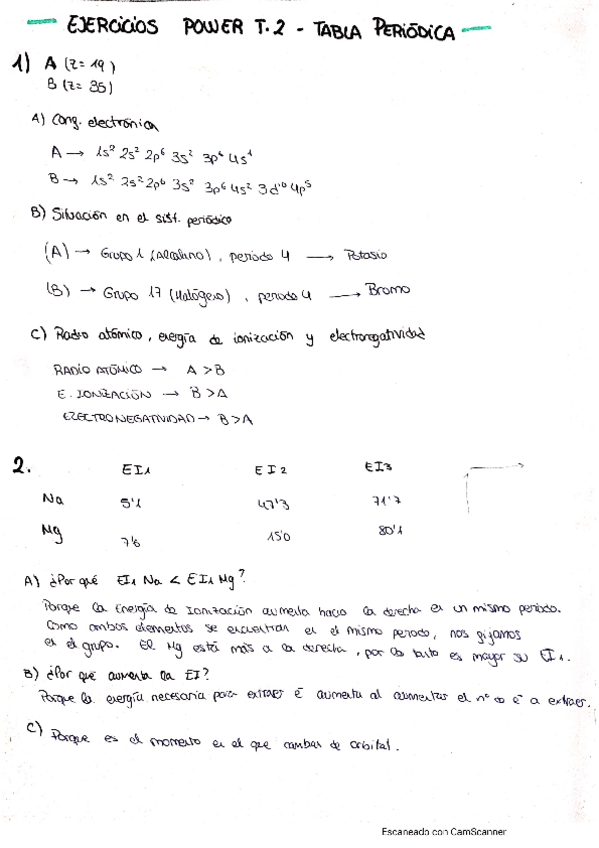 EJERCICIOS POWER T.2 - TABLA PERIÓDICA
1) A (Z=19)
B (Z=35)
A) Conf. electrónica
A → 1s² 2s² 2p⁶ 3s² 3p⁶ 4s¹
B → 1s² 2s² 2p⁶ 3s² 3p⁶ 4s² 3d¹⁰ 4p⁵
B) Situación en el sist. periódico
(A) → Grupo 1 (Alcalino), periodo 4 → Potasio
(B) → Grupo 17 (Halógeno), periodo 4 → Bromo
C) Radio atómico, energía de ionización y electronegatividad
RADIO ATÓMICO → A > B
E. IONIZACIÓN → B > A
ELECTRONEGATIVIDAD → B > A
2. EI1 EI2 EI3
Na 5'1 47'3 71'7
Mg 7'6 15'0 80'1
A) ¿Por qué EI1 Na < EI1 Mg?
Porque la Energía de Ionización aumenta hacia la derecha en un mismo periodo.
Como ambos elementos se encuentran en el mismo periodo, nos fijamos
en el grupo. El Mg está más a la derecha, por lo tanto es mayor su EI1.
B) ¿Por qué aumenta la EI?
Porque la energía necesaria para extraer ē aumenta al aumentar el nº de ē a extraer.
C) Porque es el momento en el que cambas de orbital.
Escaneado con CamScanner